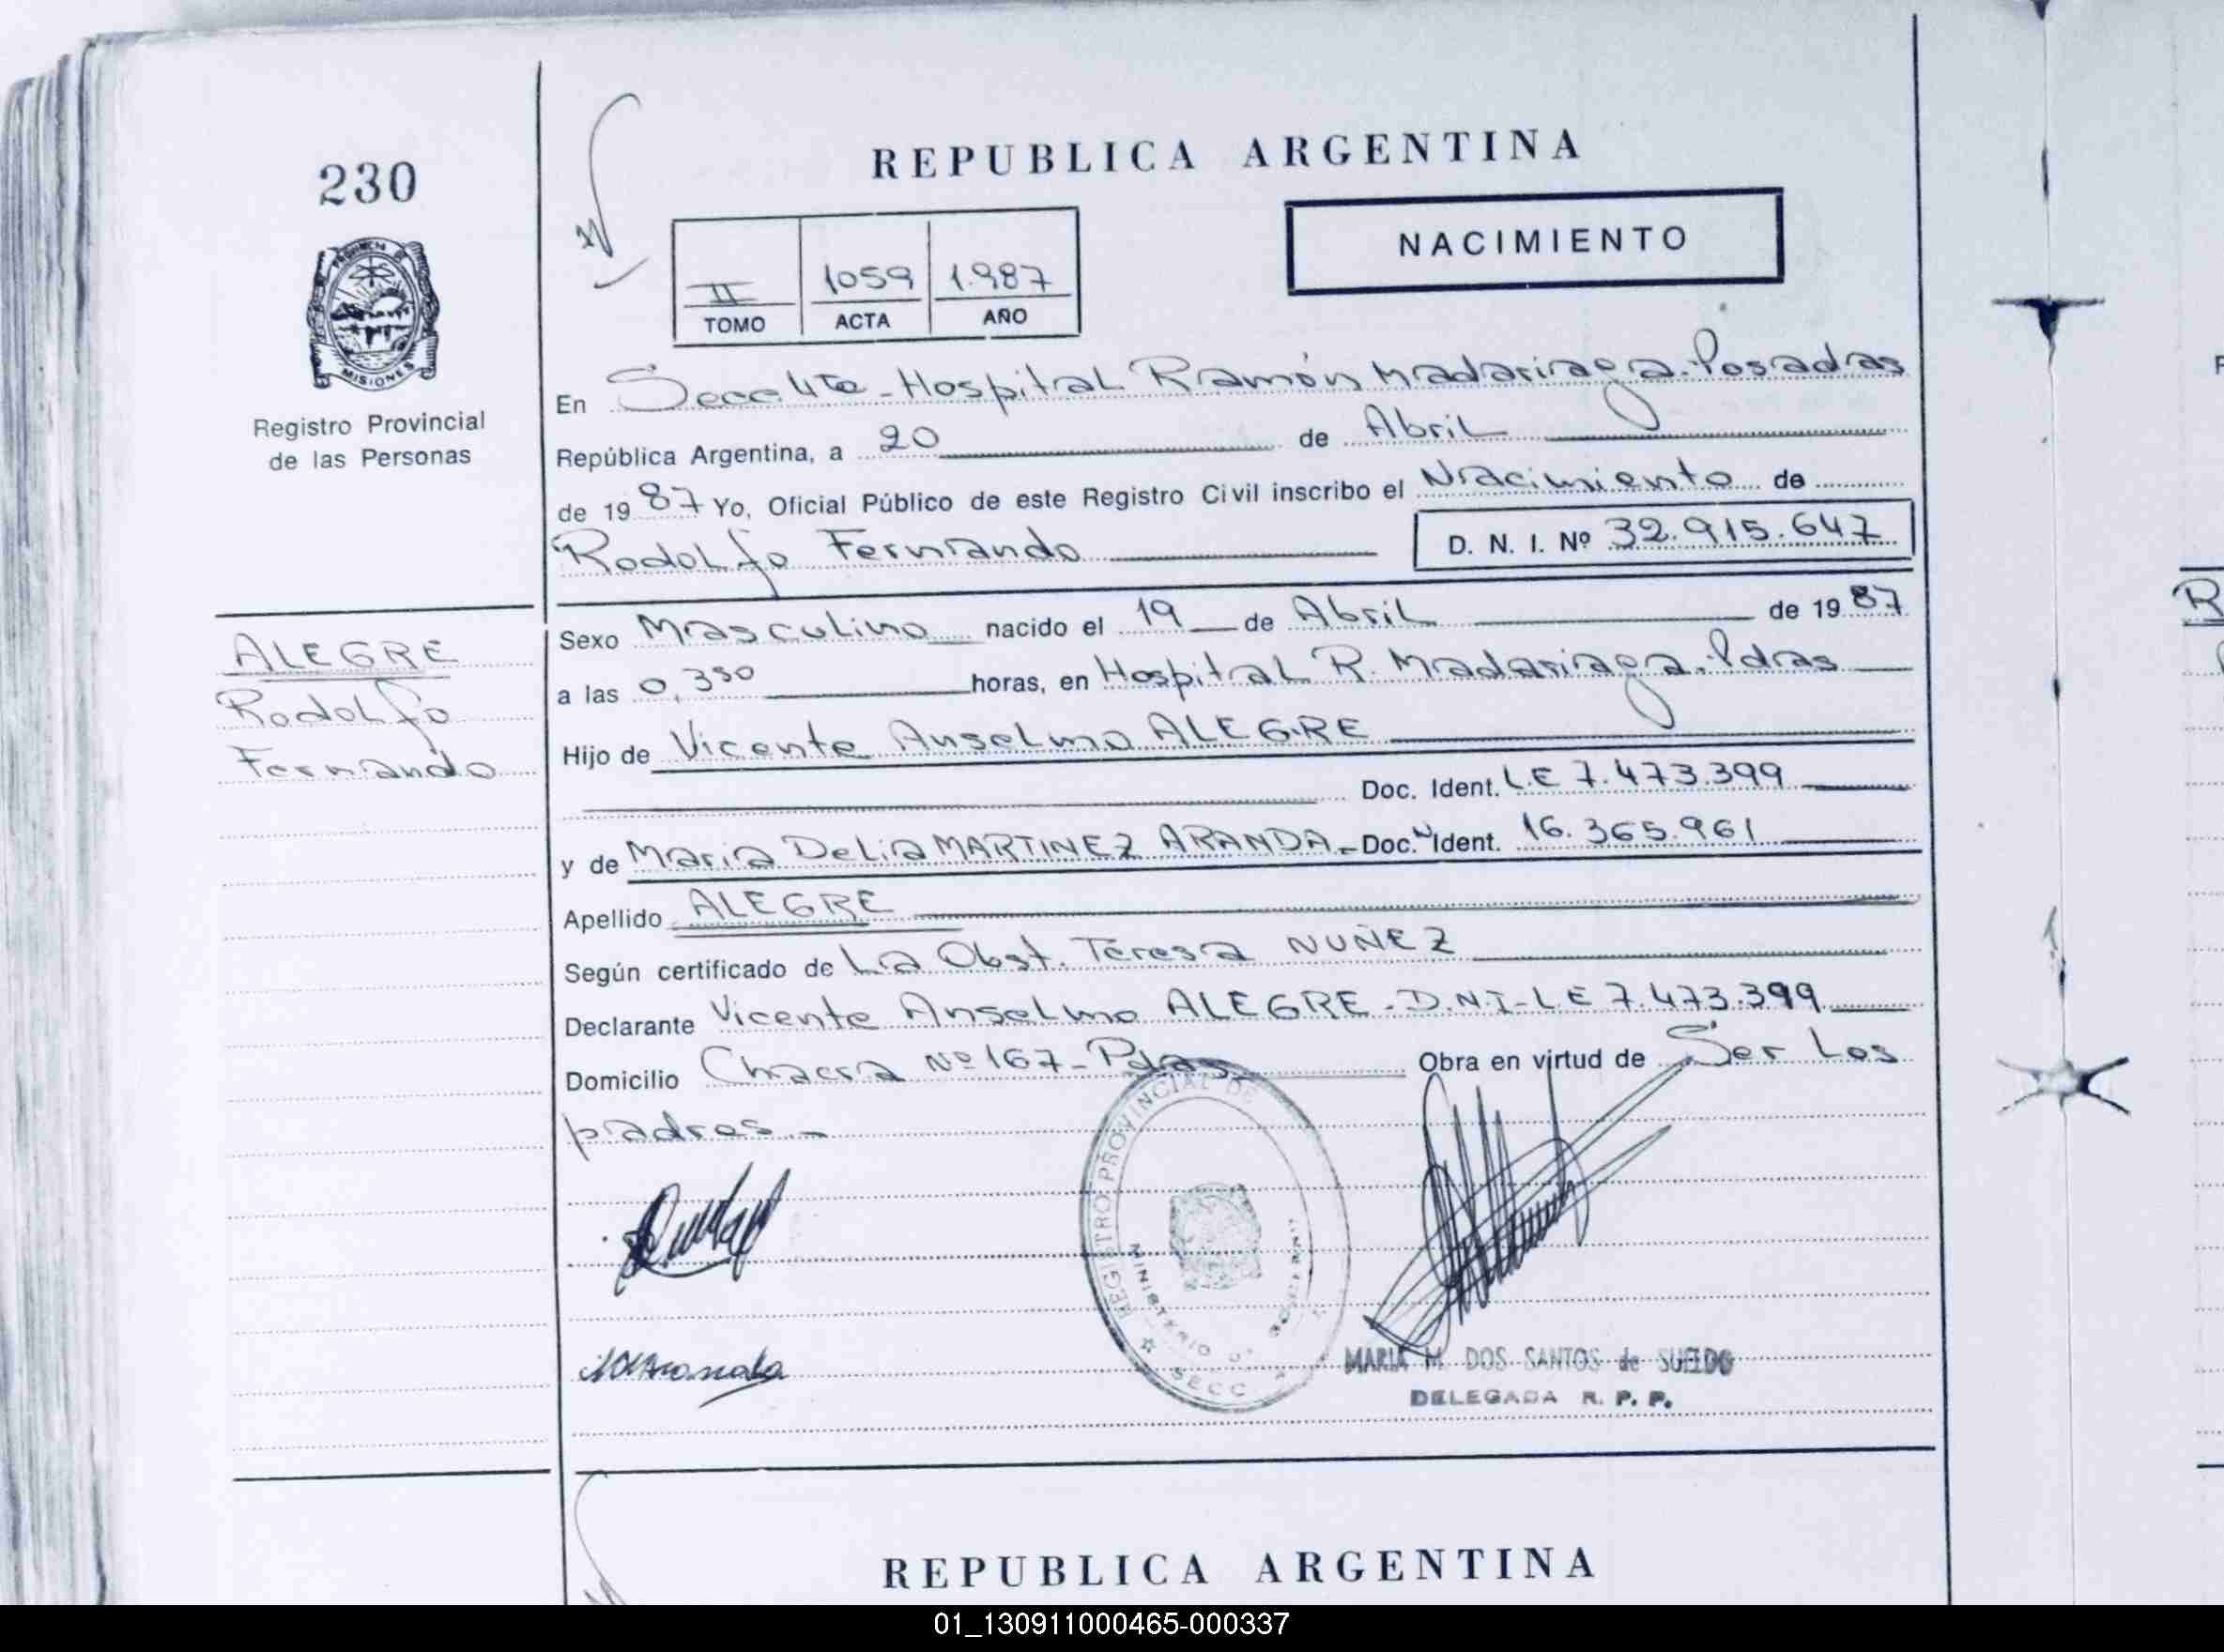 230
PROVINCIA DE
MISIONES
Registro Provincial
de las Personas
REPUBLICA ARGENTINA
NACIMIENTO
II 1059 1.987
TOMO ACTA AÑO
En Secc. 4ta - Hospital Ramón Madariaga. Posadas
República Argentina, a 20 de Abril
de 1987 Yo, Oficial Público de este Registro Civil inscribo el Nacimiento de
Rodolfo Fernando D. N. I. Nº 32.915.647
ALEGRE
Rodolfo
Fernando
Sexo Masculino nacido el 19 de Abril de 1987
a las 0,350 horas, en Hospital R. Madariaga. Pdas
Hijo de Vicente Anselmo ALEGRE
Doc. Ident. L.E 7.473.399
y de Maria Delia MARTINEZ ARANDA - Doc. Ident. 16.365.961
Apellido ALEGRE
Según certificado de La Obst. Teresa NUÑEZ
Declarante Vicente Anselmo ALEGRE - D.N.I - L E 7.473.399
Domicilio Chacra Nº 167 - Pdas. Obra en virtud de Ser Los
padres -
REGISTRO PROVINCIAL DE
MINISTERIO
SECC
MARIA M. DOS SANTOS de SUELDO
DELEGADA R. P. P.
REPUBLICA ARGENTINA
01_130911000465-000337